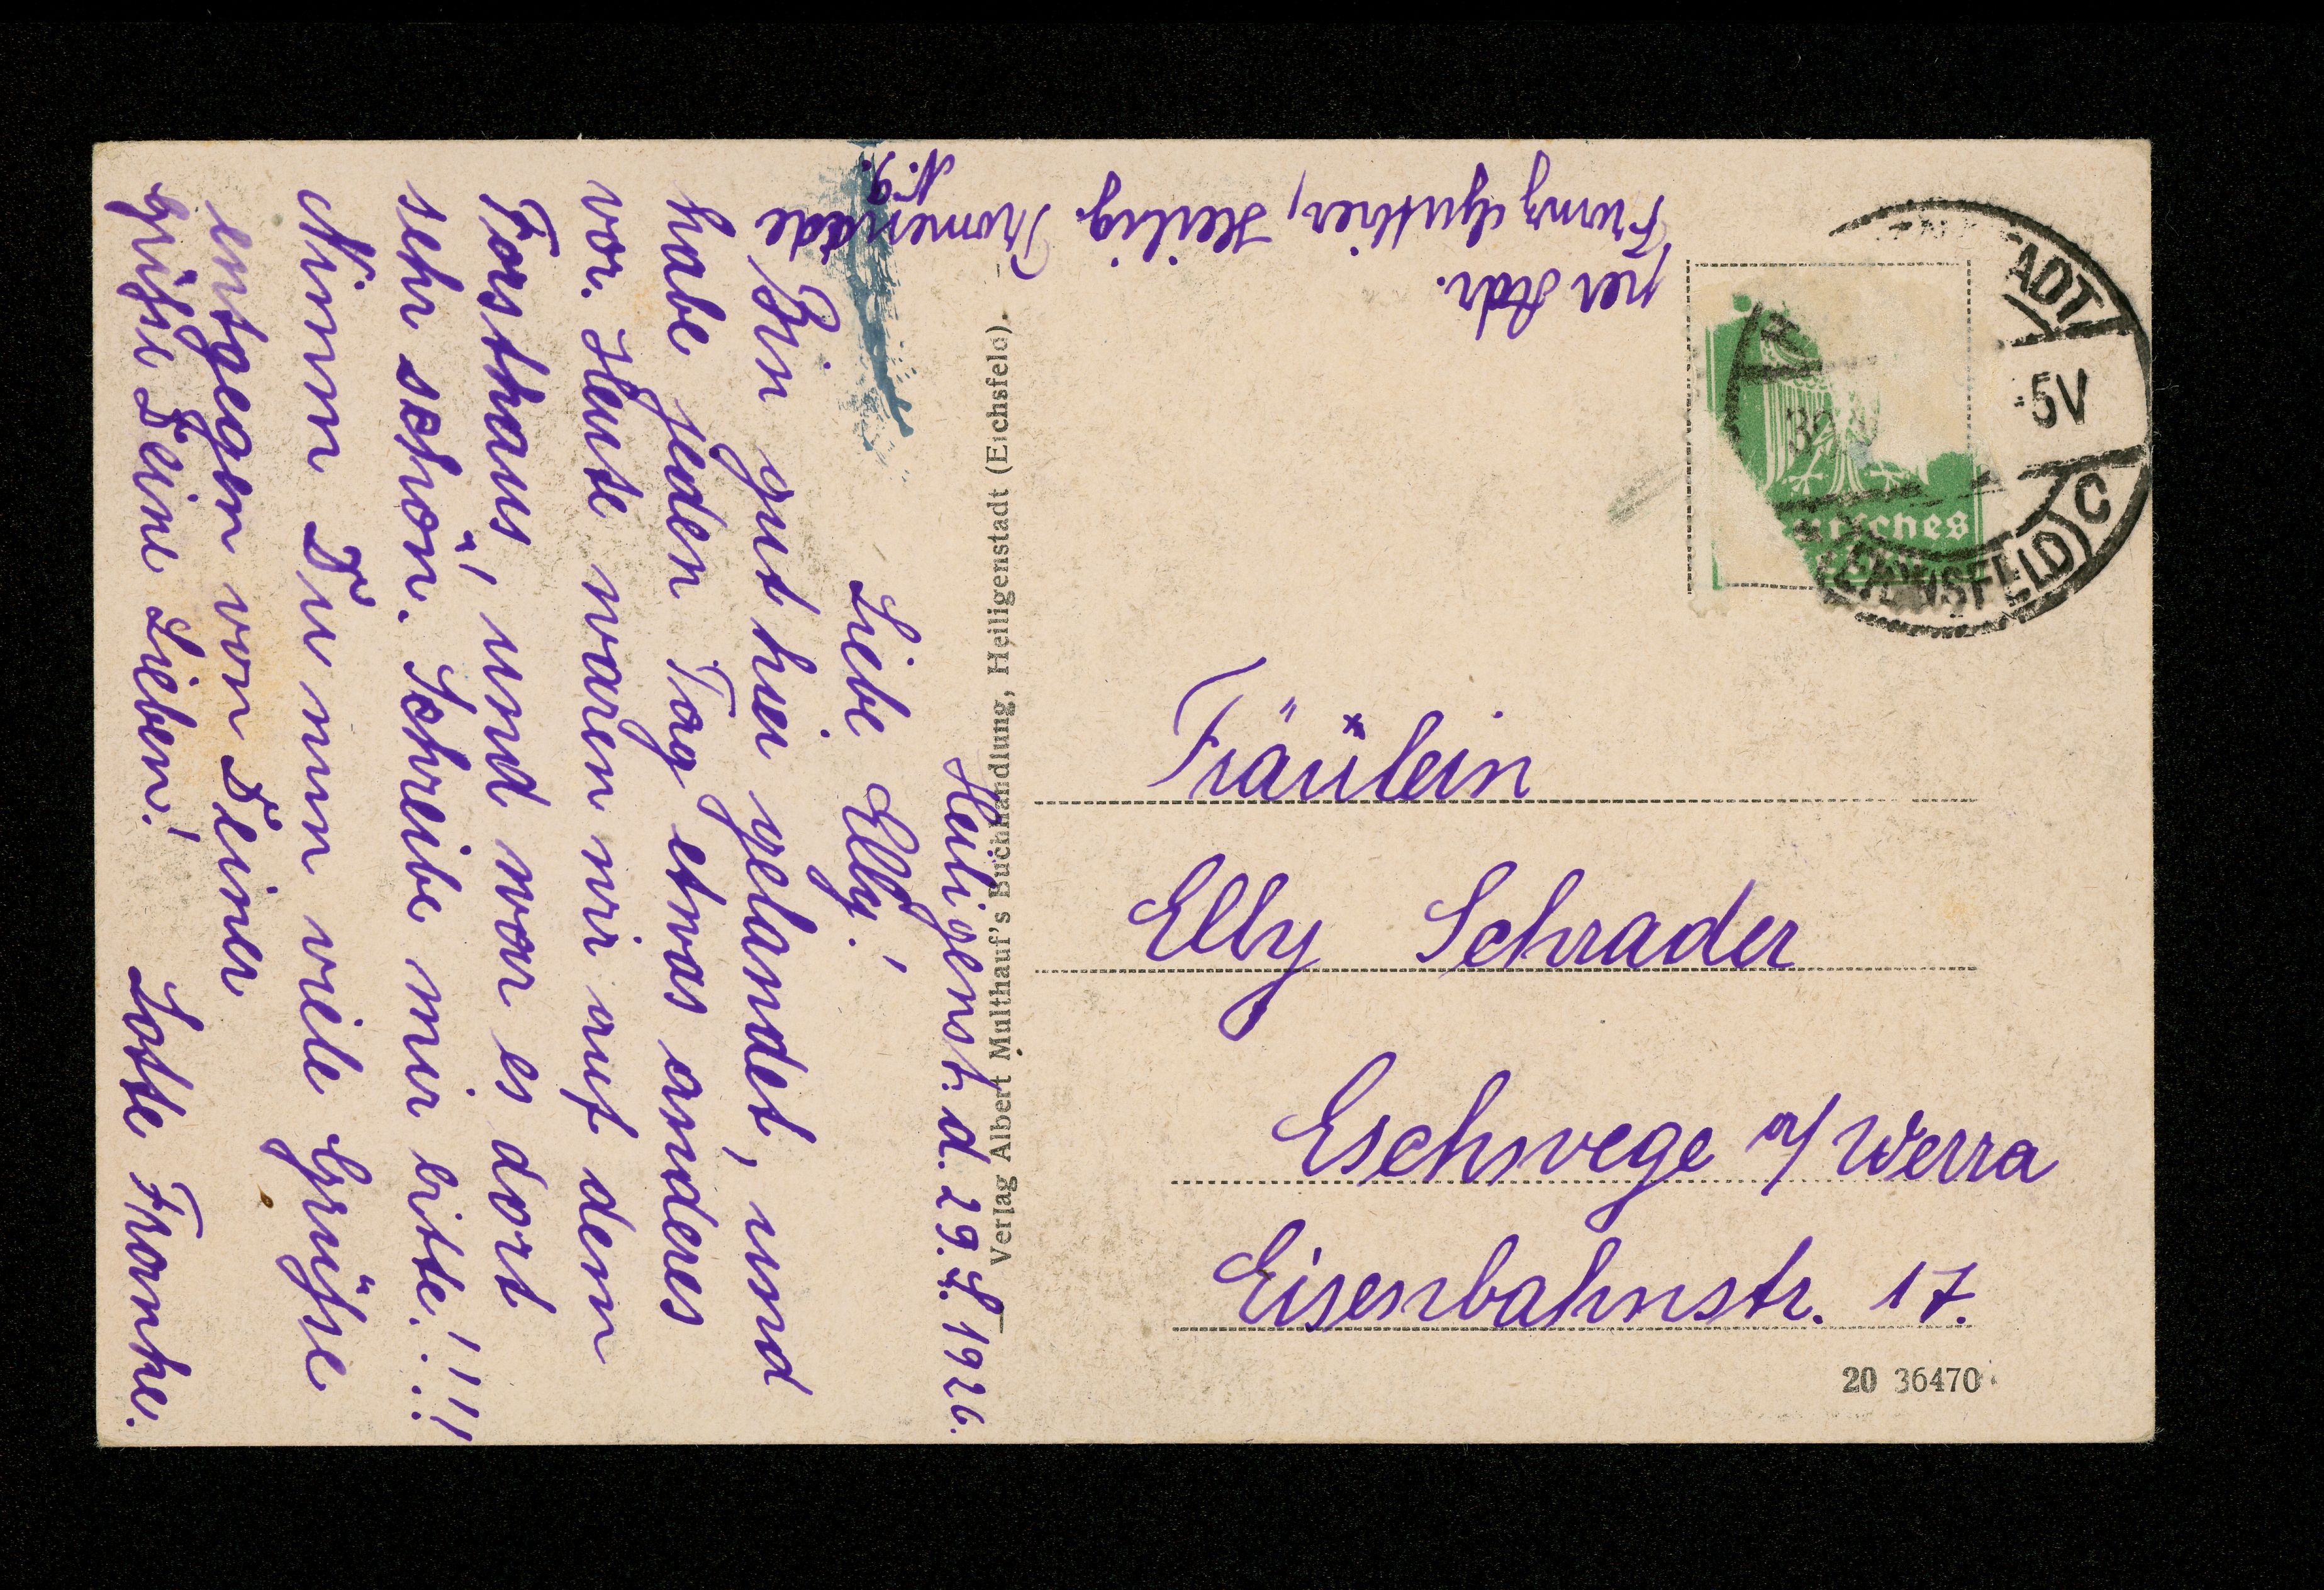 Heiligenst. d. 29.4.1926.
Liebe Elly!
Bin gut hier gelandet, und
habe jeden Tag etwas anderes
vor. Heute waren wir auf dem
"Forsthaus", und war es dort
sehr schön. Schreibe mir bitte.!!!!
Nimm Du nun viele Grüße
entgegen von Deiner
Lotte Franke.
Grüße Deine Lieben!
per Adr.
Franz Heilig. Promenade
N. 9.
Verlag Albert Multhauf's Buchhandlung, Heiligenstadt (Eichsfeld).
ADT
-5V
30
utsches
(EICHSFELD) C
Fräulein
Elly Schrader
Eschwege a/Werra
Eisenbahnstr. 17.
20 36470